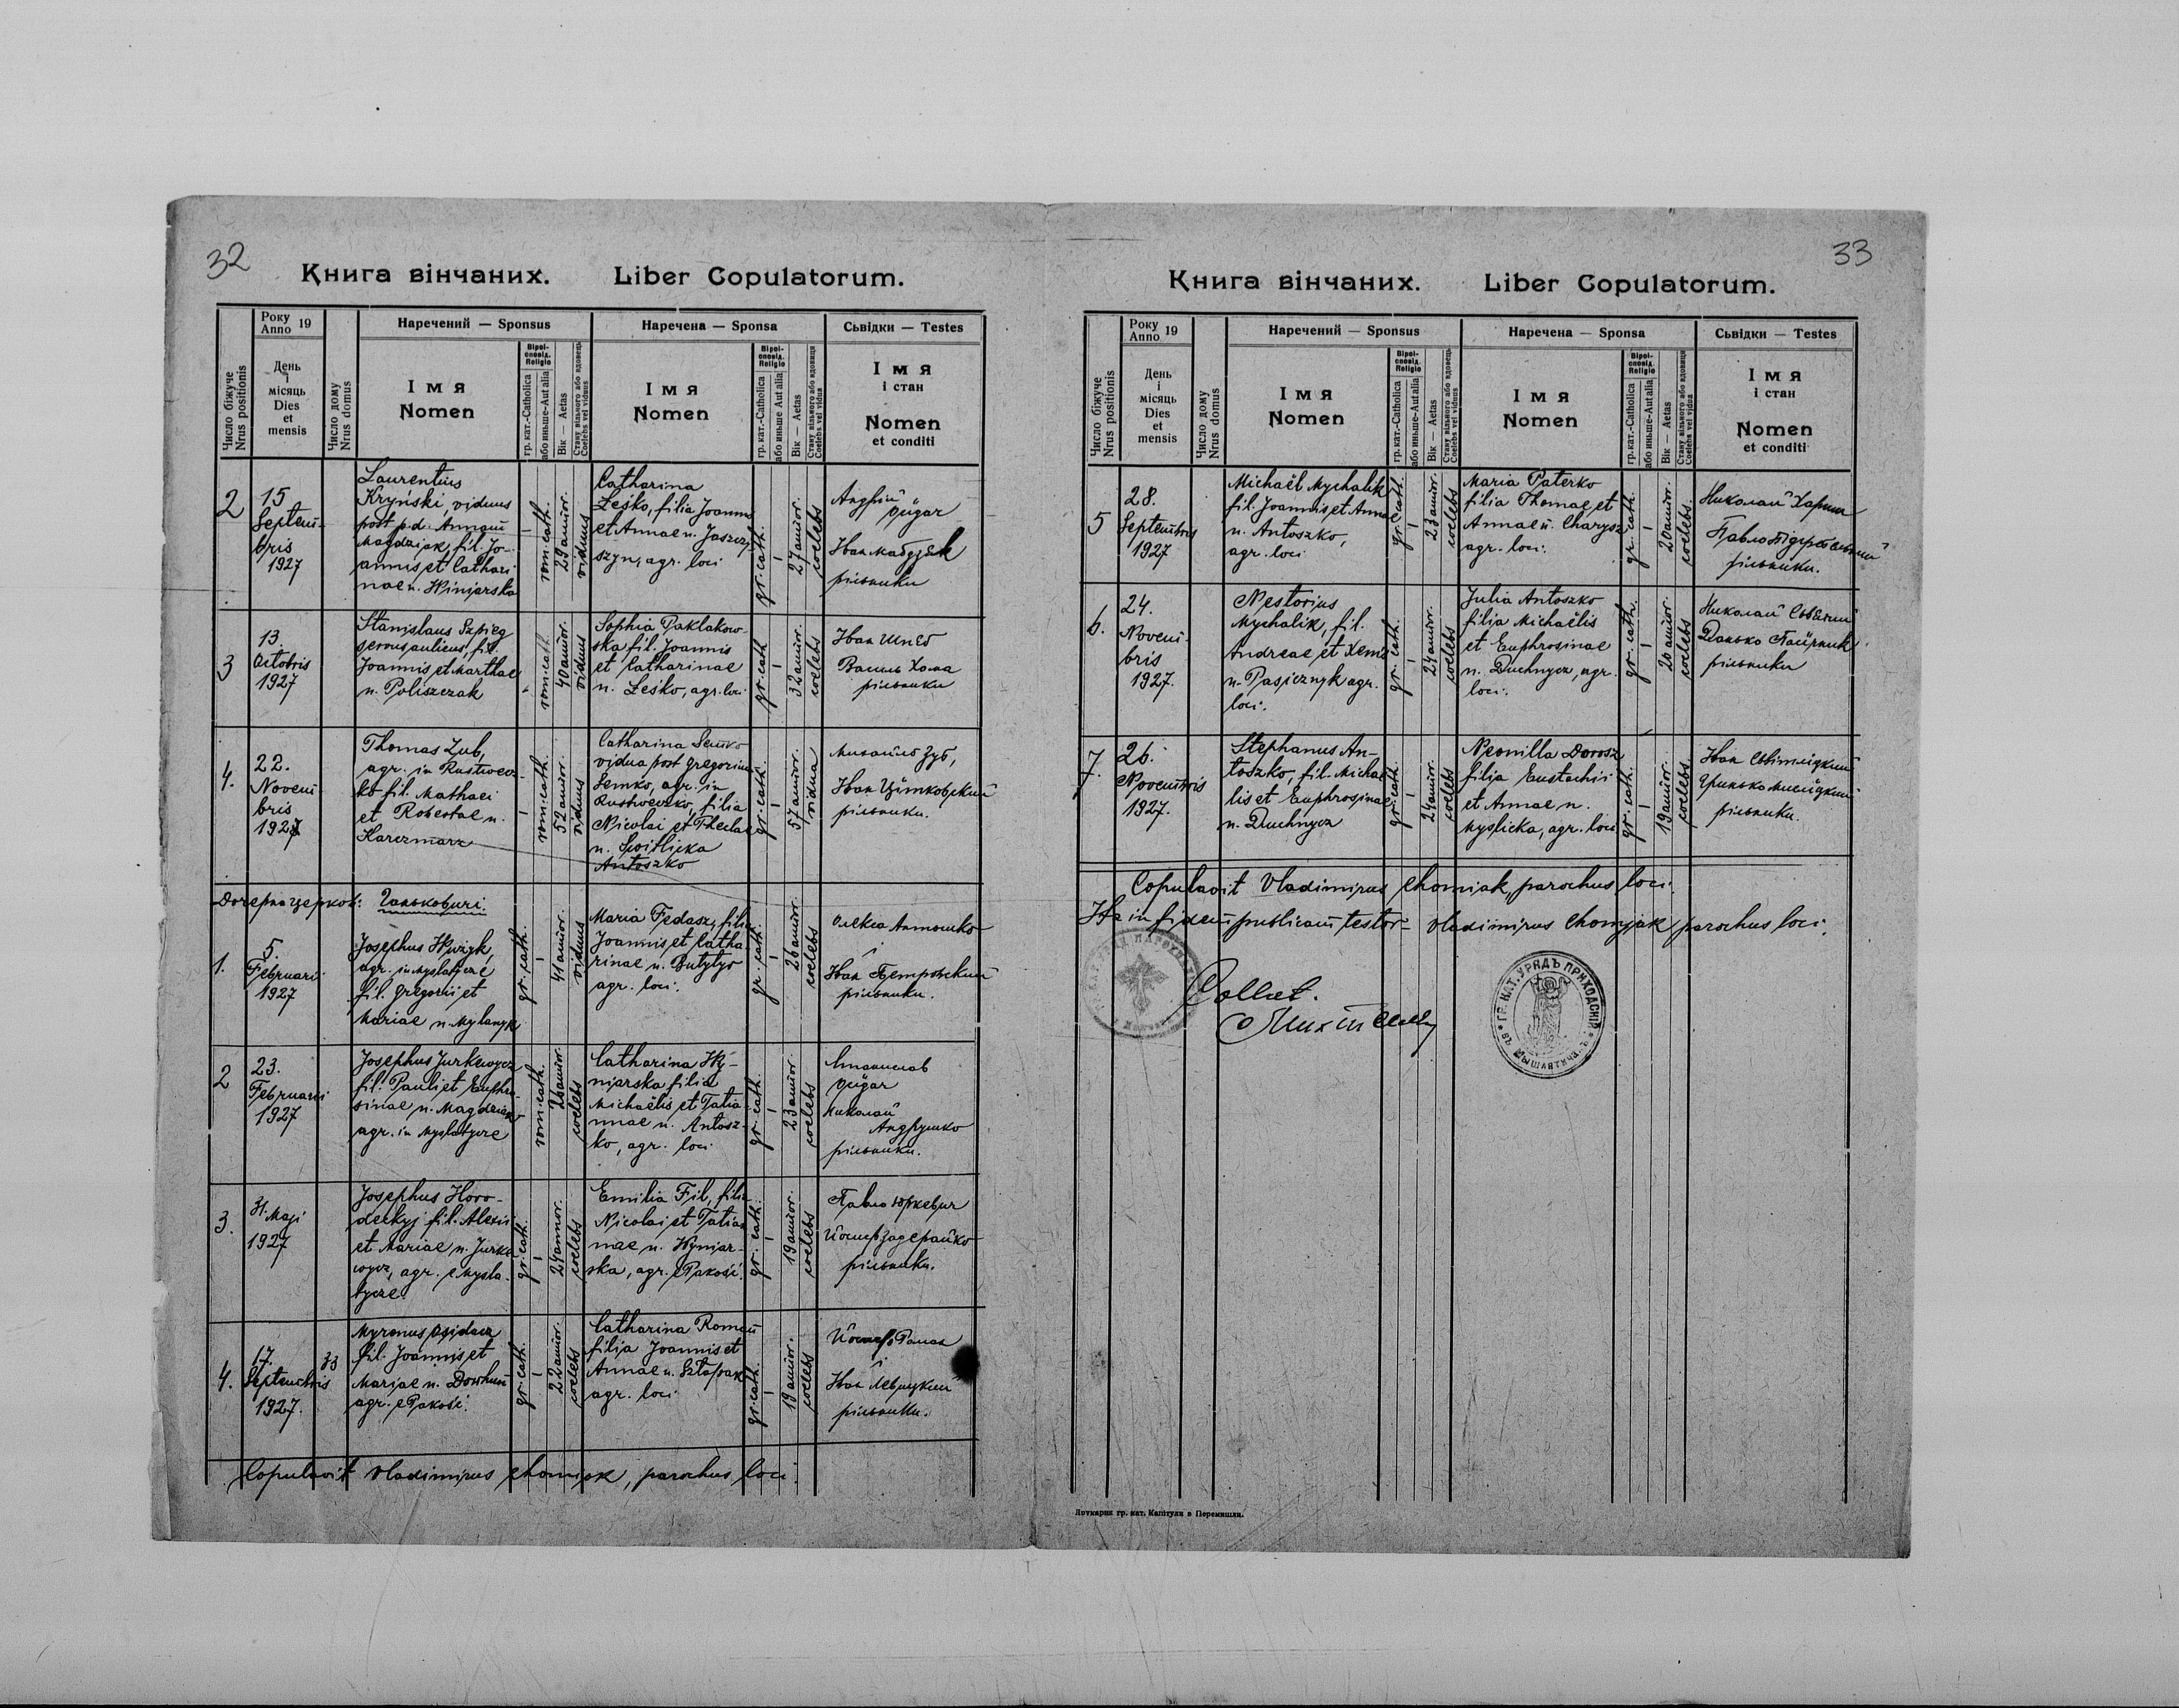 32
Книга вінчаних. Liber Copulatorum.
Число біжуче
Nrus positionis
Року
Anno 19
День
і
місяць
Dies
et
mensis
Число дому
Nrus domus
Наречений — Sponsus
Імя
Nomen
Віроі-
сповід.
Religio
гр. кат.-Catholica
або иньше-Aut alia
Вік — Aetas
Стану вільного або вдовець
Coelebs vel viduus
Наречена — Sponsa
Імя
Nomen
Віроі-
сповід.
Religio
гр. кат.-Catholica
або иньше Aut alia
Вік — Aetas
Стану вільного або вдовиця
Coelebs vel vidua
Сьвідки — Testes
Імя
і стан
Nomen
et conditi
2
15
Septem-
bris
1927
Laurentius
Kryński, viduus
post p.d. Annam
Magdziak, fil. Jo-
annis et Cathari
nae n. Winjarska
rom. cath.
29 annor.
viduus
Catharina
Leśko, filia Joannis
et Annae n. Jaszczy
szyn, agr. loci
gr. cath.
27 annor.
coelebs
Андрій
Фідар
Іван Магдзяк
рільники
3
13.
Octobris
1927
Stanislaus Szpieg
servus aulicus, fil.
Joannis et Marthae
n. Poliszczak
rom. cath.
40 annor.
viduus
Sophia Paklakow-
ska fil. Joannis
et Catharinae
n. Leśko, agr. loci
gr. cath
32 annor.
coelebs
Іван Шпєг
Василь Хома
рільники
4.
22.
Novem-
bris
1927
Thomas Zub,
agr. in Rustwecz-
ko fil. Mathaei
et Rosaliae n.
Karczmarz
rom. cath.
52 annor.
viduus
Catharina Semko
vidua post Gregorium
Semko, agr. in
Rustweczko, filia
Nicolai et Theclae
n. Switlicka
Antoszko
gr. cath.
57 annor.
vidua
Михайло Зуб,
Іван Цітковский
рільники.
Дочерна церков: Ганьковичі
1.
5.
Februarii
1927
Josephus
agr. in Myslatycze
fil. Gregorii et
Mariae n. Mylanyk
gr. cath.
41 annor.
viduus
Maria Fedasz, filia
Joannis et Catha-
rinae n. Butytyr
agr. loci.
gr. cath.
26 annor.
coelebs
Олекса Антошко
Іван Петровский
рільники.
2
23.
Februarii
1927
Josephus Jurkewycz
fil. Pauli et Euphro-
sinae n. Magdziak
agr. in Myslatycze
rom. cath.
26 annor.
coelebs
Catharina Wy-
njarska filia
Michaëlis et Tatia-
nnae n. Antosz-
ko, agr. loci
gr. cath.
23 annor
coelebs
Станислав
Фідар
Николай
Андрушко
рільники.
3.
31. Maji
1927
Josephus Horo-
deckyj fil. Alexii
et Mariae n. Jurke
wycz, agr. e Mysla-
tycze.
gr. cath.
24 annor.
coelebs
Emilia Fil, filia
Nicolai et Tatian
nae n. Wynjar-
ska, agr. e Pakość.
gr. cath.
19 annor.
coelebs
Павло Юркевич
Йосиф Задерайко
рільники.
4.
17.
Septembris
1927.
33
Myronus
fil. Joannis et
Mariae n. Dowhun
agr. e Pakość.
gr. cath.
22 annor.
coelebs
Catharina Roman
filia Joannis et
Annae n. Sztapak
agr. loci
gr. cath.
19 annor.
coelebs
Йосиф Роман
Іван Левицкий
рільники.
Copulavit Vladimirus Chomiak, parochus loci.
33
Книга вінчаних. Liber Copulatorum.
Число біжуче
Nrus positionis
Року
Anno 19
День
і
місяць
Dies
et
mensis
Число дому
Nrus domus
Наречений — Sponsus
Імя
Nomen
Віроі-
сповід.
Religio
гр. кат.-Catholica
або иньше-Aut alia
Вік — Aetas
Стану вільного або вдовець
Coelebs vel viduus
Наречена — Sponsa
Імя
Nomen
Віроі-
сповід.
Religio
гр. кат.-Catholica
або иньше-Aut alia
Вік — Aetas
Стану вільного або вдовиця
Coelebs vel vidua
Сьвідки — Testes
Імя
і стан
Nomen
et conditi
5
28.
Septembris
1927
Michaël Mychalik
fil. Joannis et Annae
n. Antoszko,
agr. loci
gr. cath.
23 annor.
coelebs
Maria Paterko
filia Thomae et
Annae n. Charysz
agr. loci.
gr. cath.
20 annor.
coelebs.
Николай Хариш
Павло
рільники.
6.
24.
Novem-
bris
1927.
Nestorius
Mychalik, fil.
Andreae et Xeniae
n. Pasicznyk agr.
loci.
gr. cath.
24 annor.
coelebs
Julia Antoszko
filia Michaëlis
et Euphrosinae
n. Duchnycz, agr.
loci.
gr. cath.
20 annor.
coelebs
Николай
Данько
рільники
7.
26.
Novembris
1927.
Stephanus An-
toszko, fil. Michaë
lis et Euphrosinae
n. Duchnycz
gr. cath.
24 annor.
coelebs
Neonilla Dorosz
filia Eustachii
et Annae n.
Myslicka, agr. loci
gr. cath.
19 annor.
coelebs
Іван Світліцкий
Гринько Мислїцкий
рільники.
Copulavit Vladimirus Chomiak, parochus loci.
Ita in fidem publicam testor = Vladimirus Chomjak parochus loci.
Collat.
ГР. КАТ. УРЯДЪ ПРИХОДСКІЙ
въ МЫШЛЯТИЧАХЪ
Друкарня гр. кат. Капітули в Перемишли.